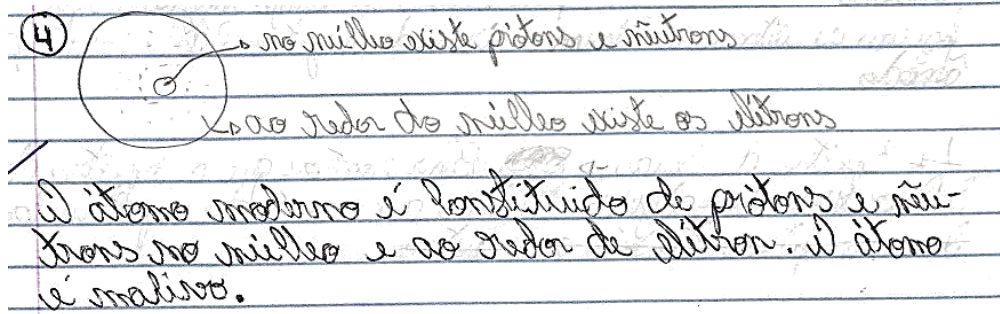 4
no núcleo existe prótons e nêutrons
ao redor do núcleo existe os elétrons
O átomo moderno é constituido de prótons e nêu-
trons no núcleo e ao redor de elétron. O átomo
é maciço.